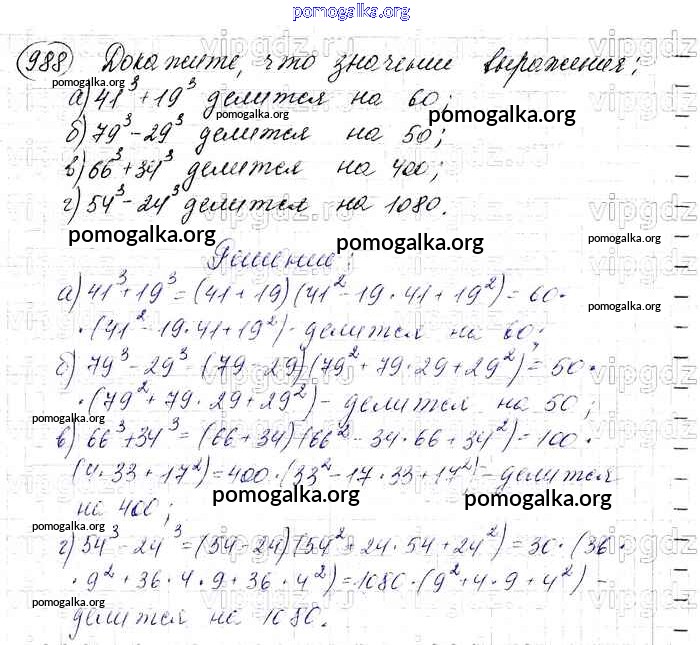 pomogalka.org
988 Докажите, что значение выражения:
pomogalka.org
а) 41³ + 19³ делится на 60;
pomogalka.org pomogalka.org
б) 79³ - 29³ делится на 50;
pomogalka.org
в) 66³ + 34³ делится на 400;
г) 54³ - 24³ делится на 1080.
pomogalka.org pomogalka.org pomogalka.org
Решение:
а) 41³ + 19³ = (41 + 19)(41² - 19 · 41 + 19²) = 60 ·
pomogalka.org
· (41² - 19 · 41 + 19²) - делится на 60;
б) 79³ - 29³ = (79 - 29)(79² + 79 · 29 + 29²) = 50 ·
· (79² + 79 · 29 + 29²) - делится на 50;
pomogalka.org
в) 66³ + 34³ = (66 + 34)(66² - 34 · 66 + 34²) = 100 ·
(4 · 33 + 17²) = 400 · (33² - 17 · 33 + 17²) - делится
pomogalka.org pomogalka.org
на 400;
pomogalka.org
г) 54³ - 24³ = (54 - 24)(54² + 24 · 54 + 24²) = 30 · (36 ·
· 9² + 36 · 4 · 9 + 36 · 4²) = 1080 · (9² + 4 · 9 + 4²) -
pomogalka.org pomogalka.org
делится на 1080.